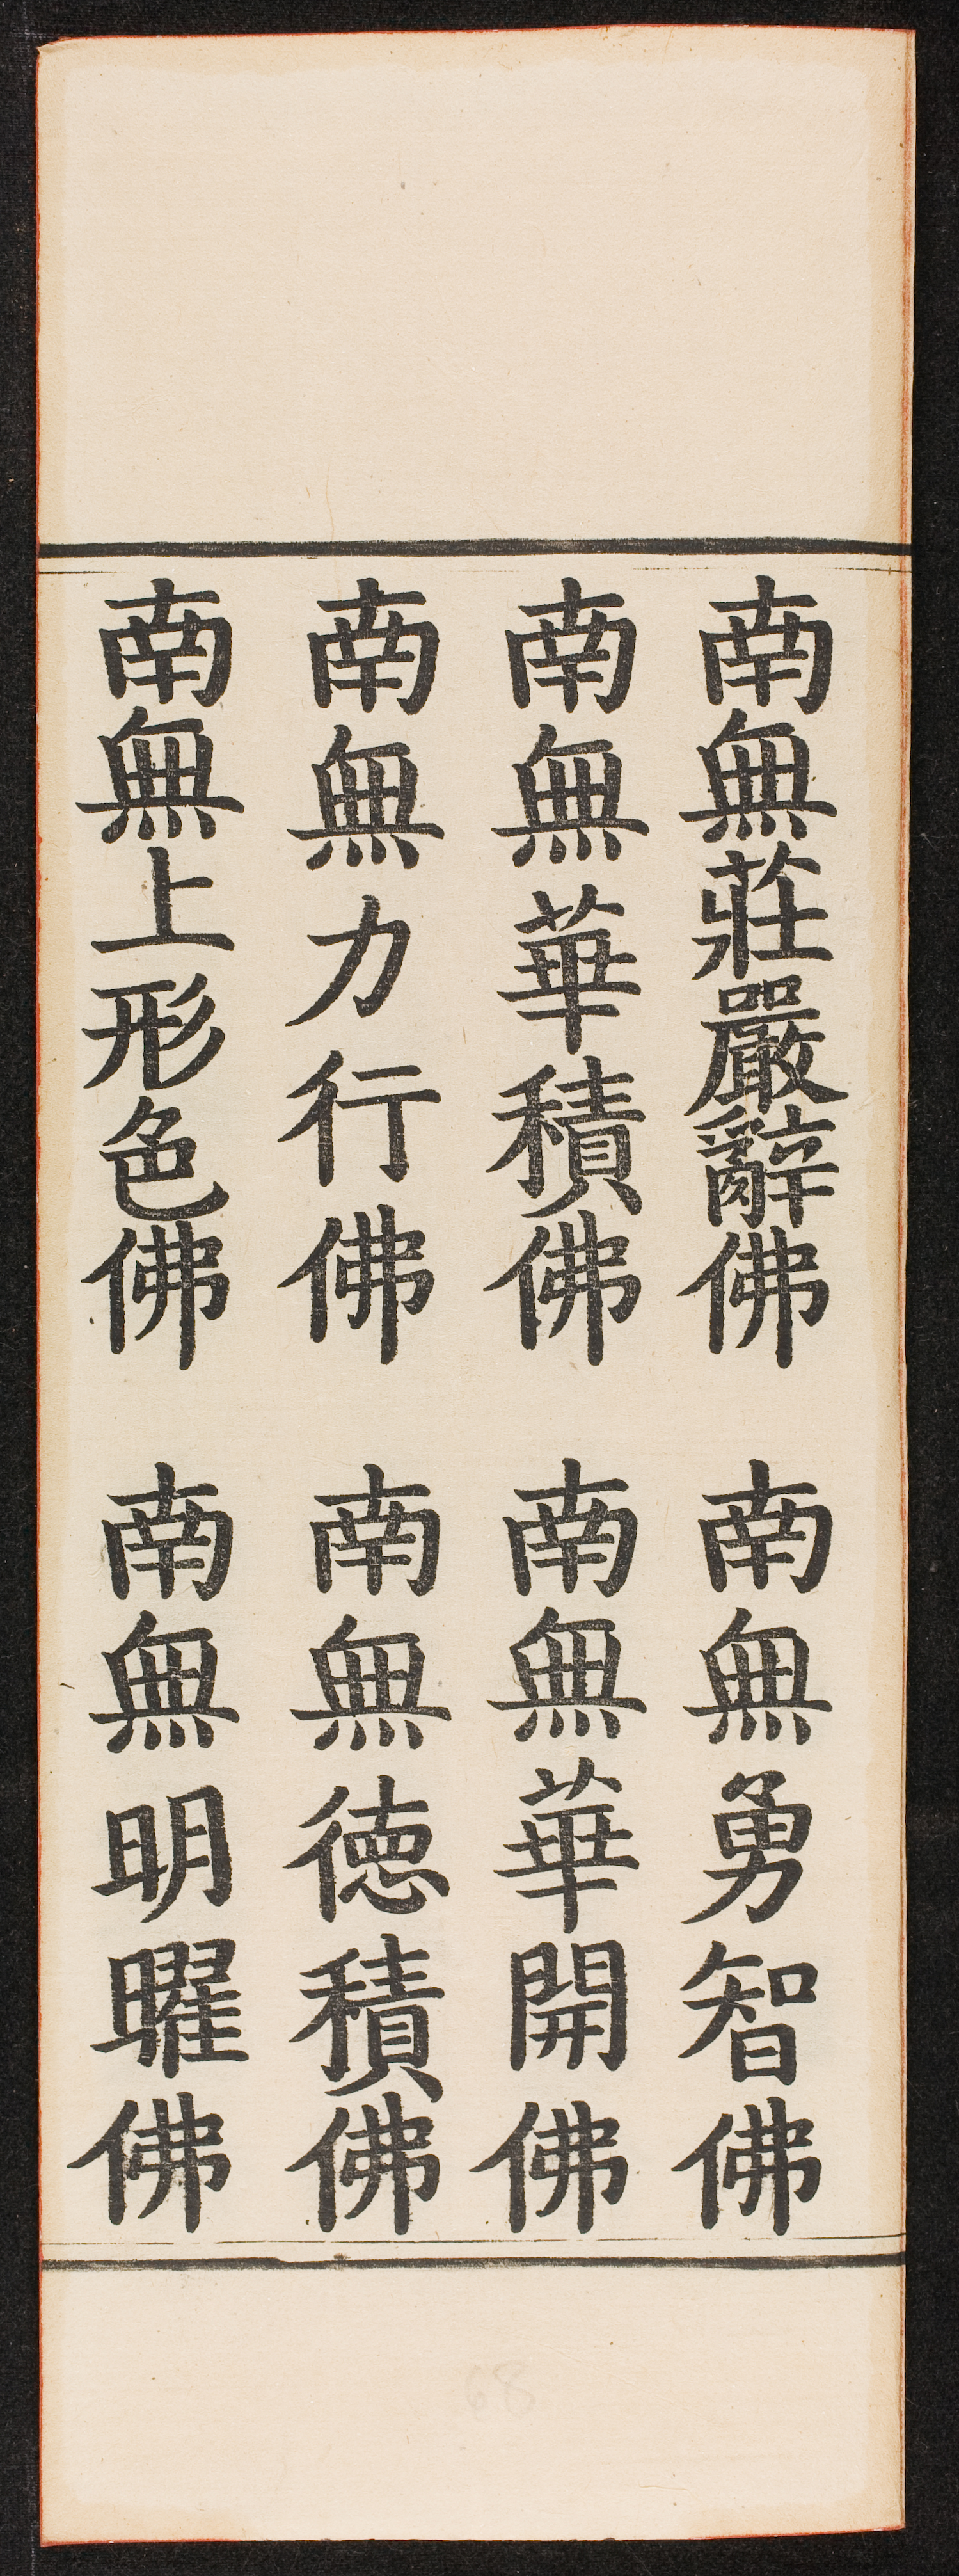 南無莊嚴辭佛　南無勇智佛
南無華積佛　南無華開佛
南無力行佛　南無徳積佛
南無上形色佛　南無明曜佛
68